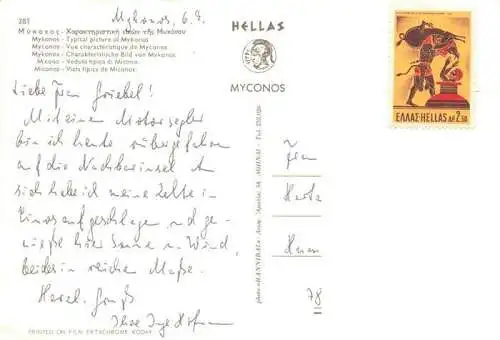 281
Μύκονος - Χαρακτηριστική εικών τῆς Μυκόνου
Mykonos - Typical picture of Mykonos
Mycone - Vue characteristique de Myconos
Mykonos - Charakteristische Bild von Mykonos
Micono - Veduta tipica di Miconos
Miconos - Vista típica de Miconos
HELLAS
MYCONOS
ΕΛΛΑΣ-HELLAS ΔΡ 2.50
Mykonos, 6.
Liebe Frau Griebel!
Mit einem Motorsegler
bin ich heute rübergefahren
auf die Nachbarinsel. An
sich habe ich meine Zelte in
Tinos aufgeschlagen und ge-
nieße hier Sonne u. Wind,
beides in reichem Maße.
Herzl. Gruß
Ihre Inge
Frau
78
photo «HANNIBAL»
PRINTED ON FILM EKTACHROME KODAK